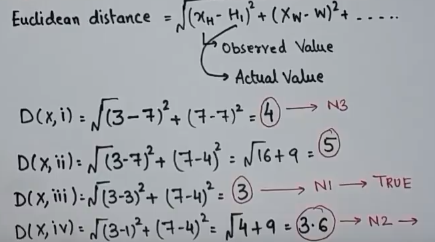 Euclidean distance = √(x_H - H₁)² + (x_W - W)² + .....
Observed Value
Actual Value
D(x,i) = √(3-7)² + (7-7)² = 4 → N3
D(x,ii) = √(3-7)² + (7-4)² = √16+9 = 5
D(x,iii) = √(3-3)² + (7-4)² = 3 → N1 → TRUE
D(x,iv) = √(3-1)² + (7-4)² = √4+9 = 3.6 → N2 →